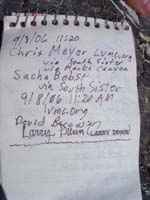 9/8/06 11:20
Chris Meyer lvmc.org
via South Sister
via Mackz Canyon
Sacha Bobst
via South Sister
9/8/06 11:20 AM
lvmc.org
David
Larry Dunn (LARRY DUNN)